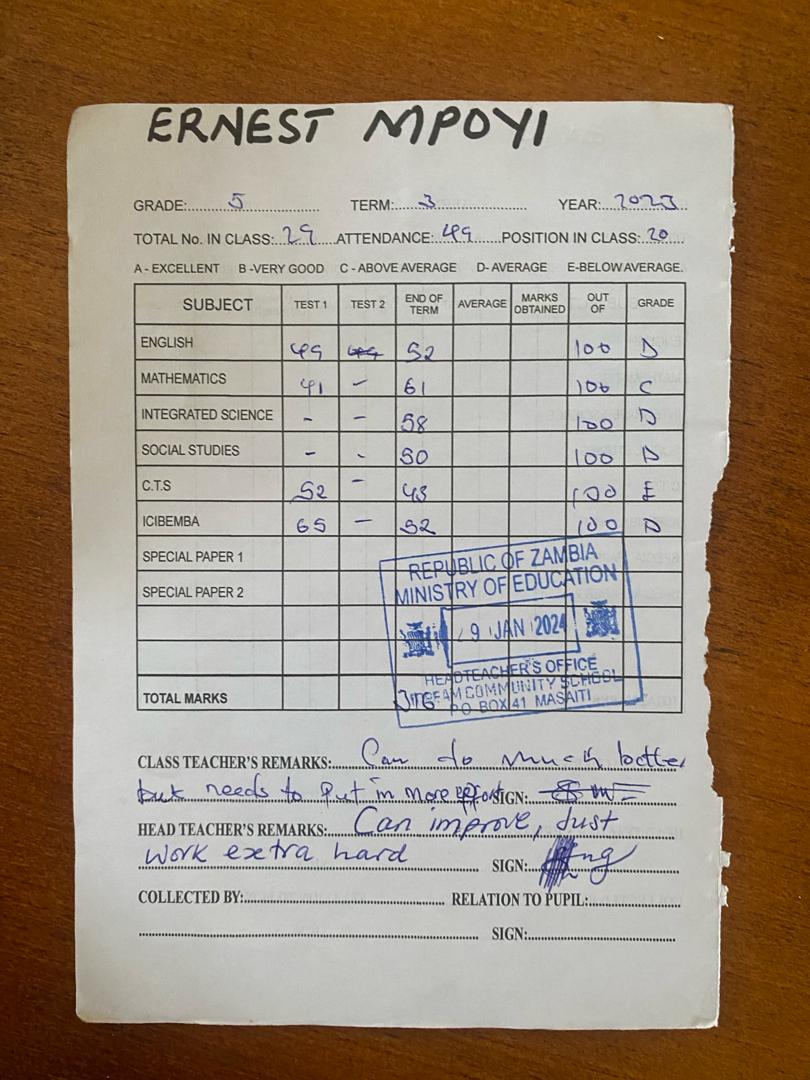 ERNEST MPOYI
GRADE: 5 TERM: 3 YEAR: 2023
TOTAL No. IN CLASS: 29 ATTENDANCE: 49 POSITION IN CLASS: 20
A - EXCELLENT B -VERY GOOD C - ABOVE AVERAGE D- AVERAGE E-BELOW AVERAGE.
SUBJECT TEST 1 TEST 2 END OF TERM AVERAGE MARKS OBTAINED OUT OF GRADE
ENGLISH 49 52 100 D
MATHEMATICS 41 - 61 100 C
INTEGRATED SCIENCE - - 58 100 D
SOCIAL STUDIES - - 50 100 D
C.T.S 52 - 43 100 E
ICIBEMBA 65 - 52 100 D
SPECIAL PAPER 1
SPECIAL PAPER 2
REPUBLIC OF ZAMBIA
MINISTRY OF EDUCATION
9 JAN 2024
HEADTEACHER'S OFFICE
COMMUNITY SCHOOL
P.O. BOX 41 MASAITI
TOTAL MARKS
CLASS TEACHER'S REMARKS: Can do much better
but needs to put in more effort SIGN:
HEAD TEACHER'S REMARKS: Can improve, Just
work extra hard SIGN:
COLLECTED BY: RELATION TO PUPIL:
SIGN: